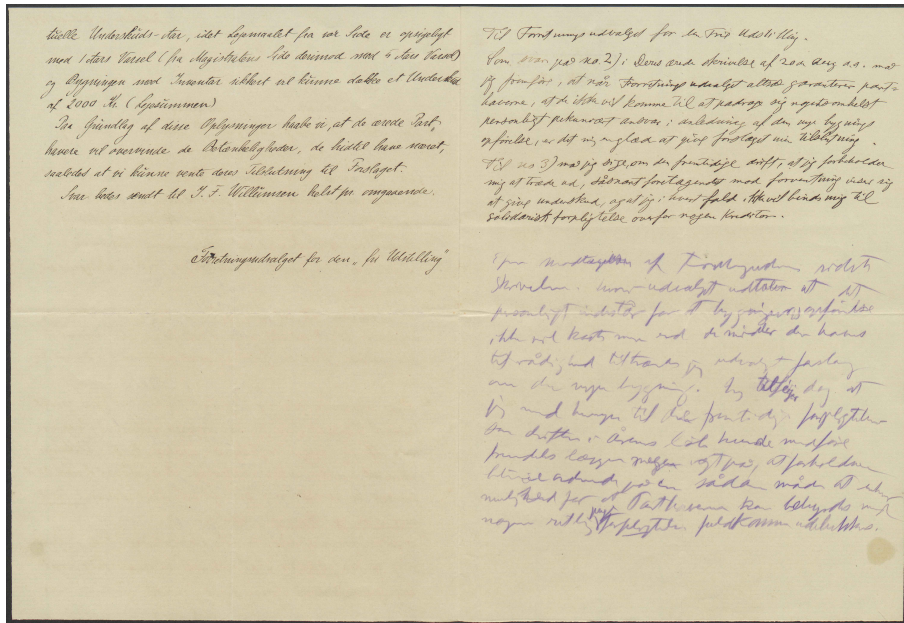 tuelle Underskuds-Aar, idet Lejemaalet fra vor Side er opsigeligt
med 1 Aars Varsel (fra Magistratens Side derimod med 5 Aars Varsel)
og Bygningen med Inventar sikkert vil kunne dække et Underskud
af 2000 Kr. (Lejesummen)
Paa Grundlag af disse Oplysninger haabe vi, at de ærede Part-
havere vil overvinde de Betænkeligheder, de hidtil have næret,
saaledes at vi kunne vente deres Tilslutning til Forslaget.
Svar bedes sendt til J. F. Willumsen helst pr. omgaaende.
Forretningsudvalget for den „frie Udstilling"
Til Forretningsudvalget for den Frie Udstilling.
Som svar på no. 2) i Deres ærede skrivelse af 20de Aug. d.a. må
jeg fremføre, at når Forretningsudvalget altså garanterer part-
haverne, at de ikke vil komme til at pådrage sig noget somhelst
personligt pekuniært ansvar i anledning af den nye bygnings
opførelse, er det mig en glæde at give forslaget min tilslutning.
Til no 3) må jeg sige om den fremtidige drift, at jeg forbeholder
mig at træde ud, såsnart foretagendet mod forventning viser sig
at give underskud, og at jeg i hvert fald ikke vil binde mig til
solidarisk forpligtelse overfor nogen kreditor.
Efter modtagelsen af sidste
skrivelse. hvor udvalget udtaler at det
personligt indestår for at bygningens opførelse
ikke vil koste mere end de midler den haves
til rådighed tiltræder jeg udvalgts forslag
om den nye bygning. Jeg tilføjer dog at
jeg med hensyn til de fremtidige forpligtelser
som driften i Årenes løb kunde medføre
fremdeles lægger megen vægt på, at forholdene
blive ordnede på en sådan måde at enhver
mulighed for at Parthaverne kan bebyrdes med
nogen forpligtelse fuldkommen udelukkes.